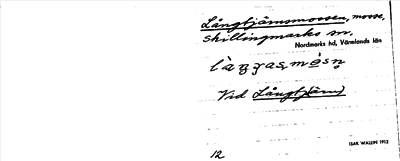 Långtjärnsmossen, mosse,
Skillingmarks sn.
Nordmarks hd, Värmlands län
Vid Långtjärn
ISAK WALLIN 1912
12